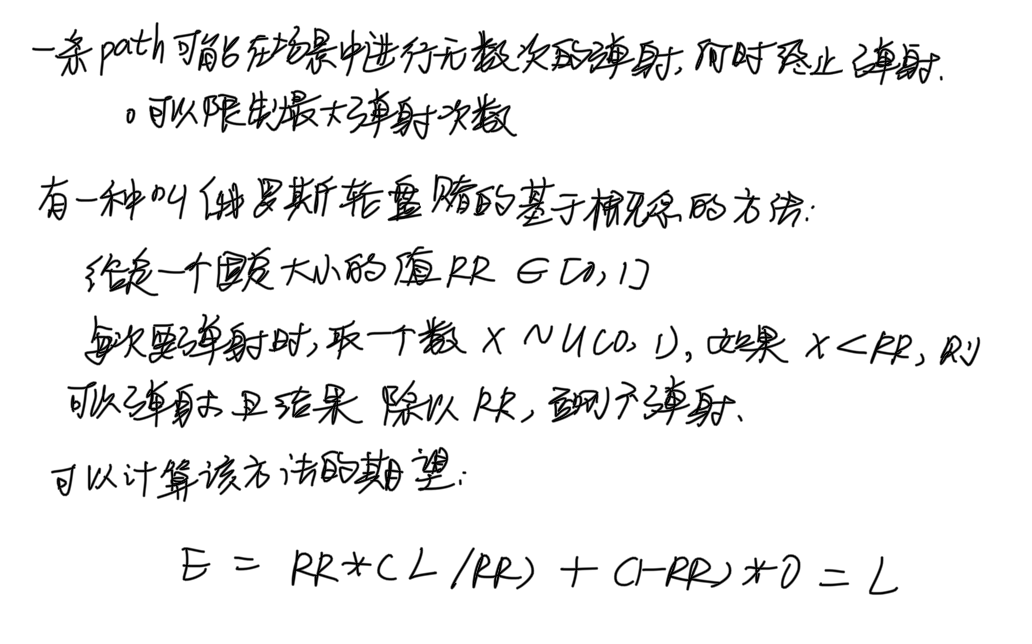 一条path可能在场景中进行无数次的弹射,何时终止弹射.
。可以限制最大弹射次数
有一种叫俄罗斯轮盘赌的基于概念的方法:
给定一个固定大小的值 RR ∈ [0, 1]
每次要弹射时,取一个数 X ~ U(0, 1), 如果 X < RR, 则
可以弹射且结果 除以 RR, 否则不弹射.
可以计算该方法的期望:
E = RR*(L/RR) + (1-RR)*0 = L